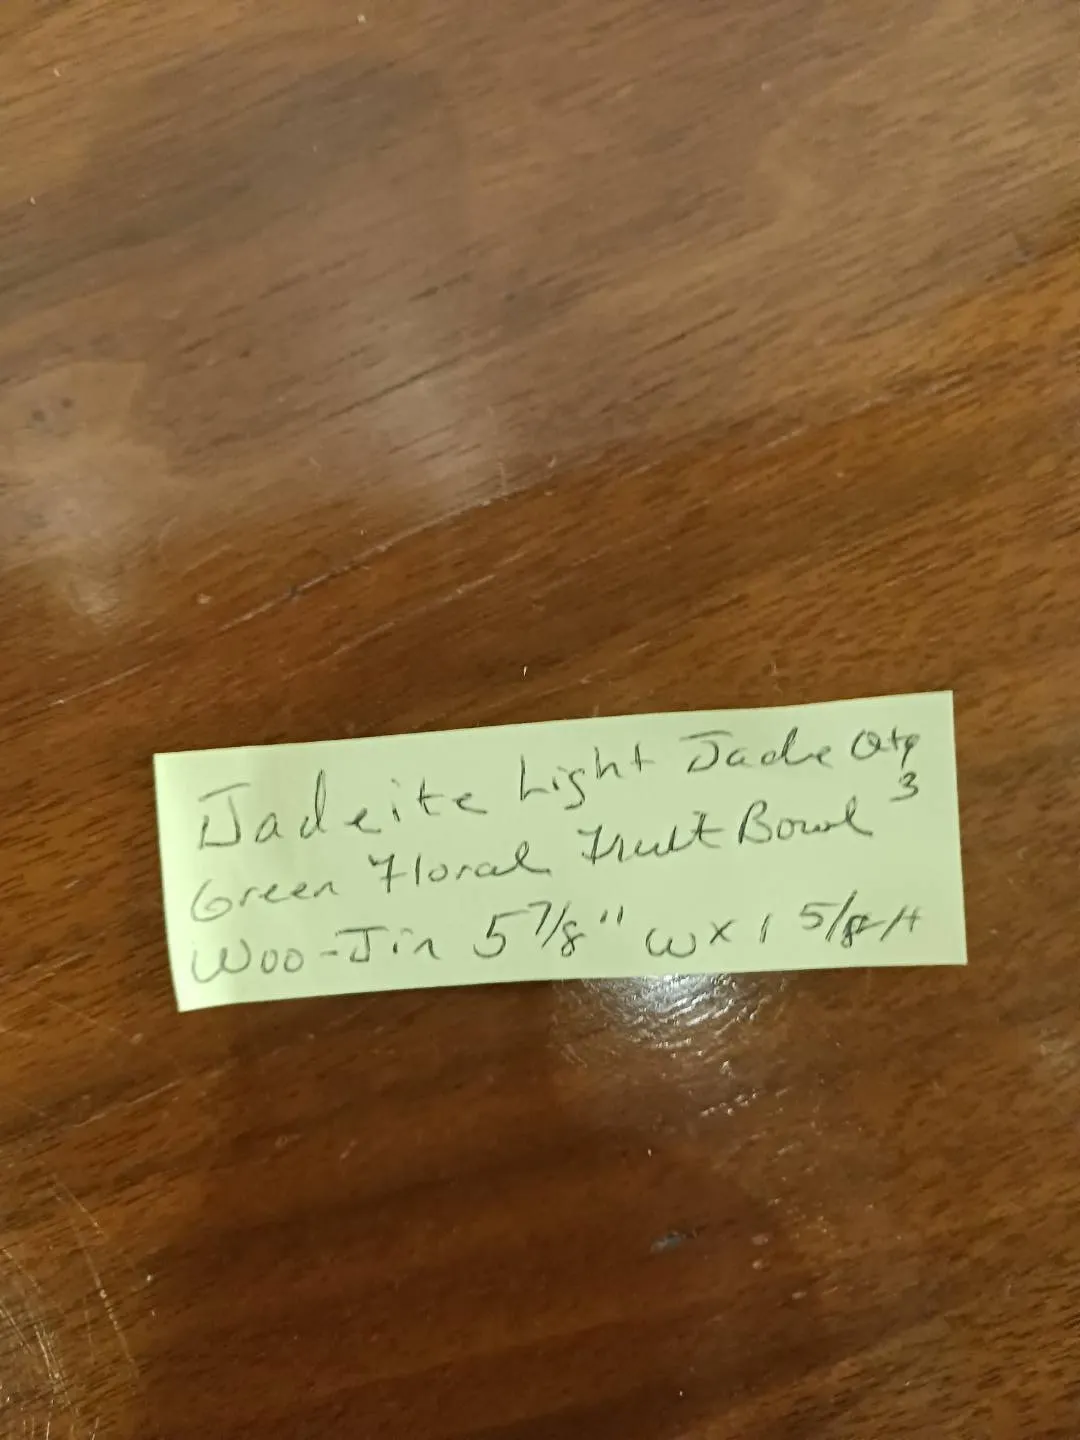 Jadeite Light Jade Qty
3
Green Floral Fruit Bowl
Woo-Jin 5 7/8" W x 1 5/8 H